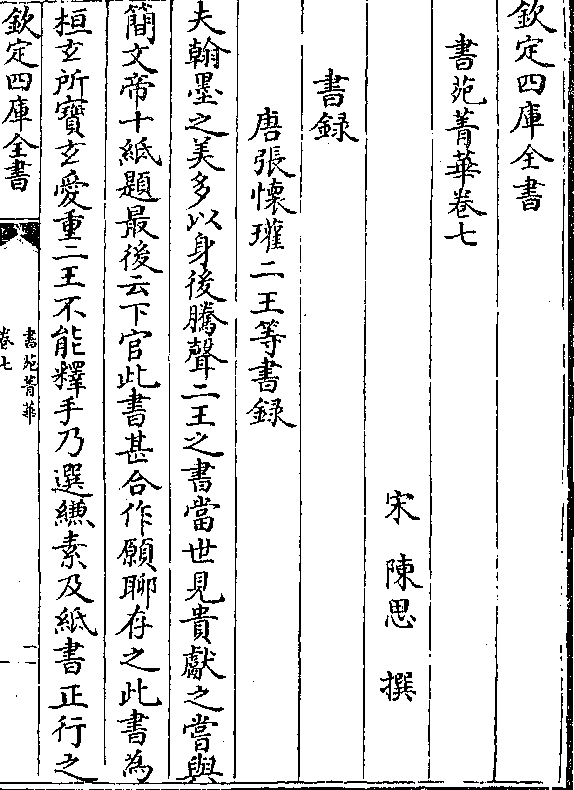 欽定四庫全書
書苑菁華卷七
宋 陳思 撰
書録
唐張懷瓘二王等書録
夫翰墨之美多以身後騰聲二王之書當世見貴獻之嘗與
簡文帝十紙題最後云下官此書甚合作願聊存之此書為
桓玄所寶玄愛重二王不能釋手乃選縑素及紙書正行之
欽定四庫全書
書苑菁華
卷七
一